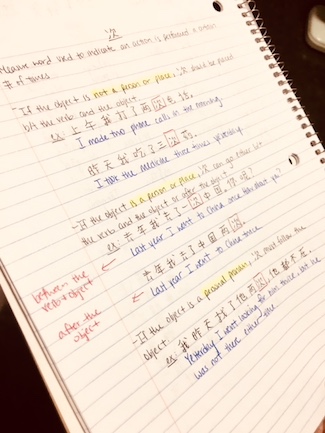 次
Measure word used to indicate an action is performed a certain
# of times
- If the object is not a person or place, 次 should be placed
b/t the verb and the object.
ex. 上午我打了两次电话。
I made two phone calls in the morning.
昨天我吃了三次药。
I took the medicine three times yesterday.
- If the object is a person or place, 次 can go either b/t
the verb and the object or after the object.
ex. 去年我去了一次中国
Last year I went to China once
去年我去了中国两次。
Last year I went to China twice.
between the
verb + object
after the
object
- If the object is a personal pronoun, 次 must follow the
object.
ex. 我昨天找了他两次他都不在。
Yesterday I went looking for him twice, but he
was not there either time.